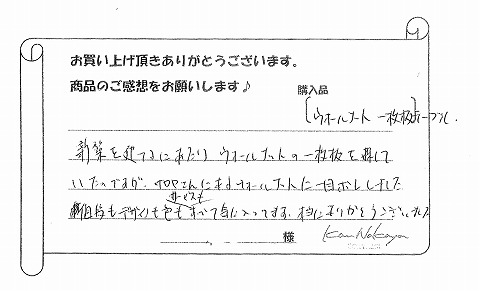 お買い上げ頂きありがとうございます。
商品のご感想をお願いします♪
購入品
[ウォールナット 一枚板]テーブル.
新築を建てるにあたり ウォールナットの一枚板を探して
いたのですが、TOPさんにあるウォールナットに一目ぼれしました
サービスも
値段もデザインも色もすべて気に入ってます。本当にありがとうございました
様